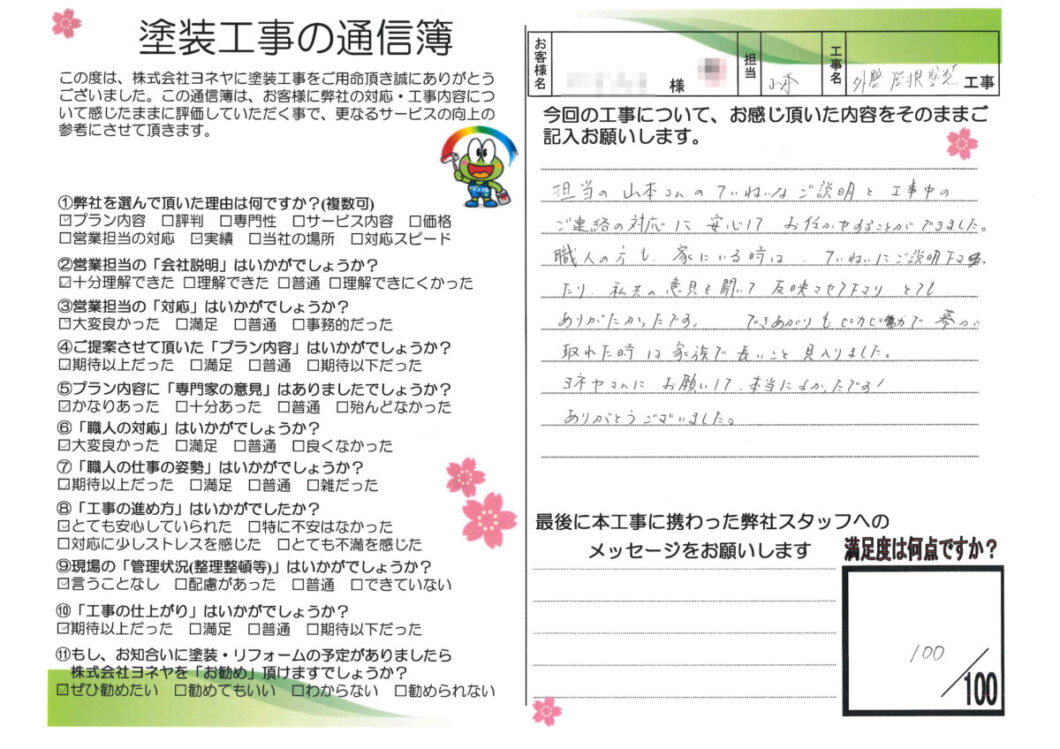 塗装工事の通信簿
この度は、株式会社ヨネヤに塗装工事をご用命頂き誠にありがとう
ございました。この通信簿は、お客様に弊社の対応・工事内容につ
いて感じたままに評価していただく事で、更なるサービスの向上の
参考にさせて頂きます。
①弊社を選んで頂いた理由は何ですか?(複数可)
☑プラン内容 □評判 □専門性 □サービス内容 □価格
□営業担当の対応 ☑実績 □当社の場所 □対応スピード
②営業担当の「会社説明」はいかがでしょうか?
☑十分理解できた □理解できた □普通 □理解できにくかった
③営業担当の「対応」はいかがでしょうか?
☑大変良かった □満足 □普通 □事務的だった
④ご提案させて頂いた「プラン内容」はいかがでしょうか?
☑期待以上だった □満足 □普通 □期待以下だった
⑤プラン内容に「専門家の意見」はありましたでしょうか?
☑かなりあった □十分あった □普通 □殆んどなかった
⑥「職人の対応」はいかがでしょうか?
☑大変良かった □満足 □普通 □良くなかった
⑦「職人の仕事の姿勢」はいかがでしょうか?
☑期待以上だった □満足 □普通 □雑だった
⑧「工事の進め方」はいかがでしたか?
☑とても安心していられた □特に不安はなかった
□対応に少しストレスを感じた □とても不満を感じた
⑨現場の「管理状況(整理整頓等)」はいかがでしょうか?
☑言うことなし □配慮があった □普通 □できていない
⑩「工事の仕上がり」はいかがでしょうか?
☑期待以上だった □満足 □普通 □期待以下だった
⑪もし、お知合いに塗装・リフォームの予定がありましたら
株式会社ヨネヤを「お勧め」頂けますでしょうか?
☑ぜひ勧めたい □勧めてもいい □わからない □勧められない
お客様名 様 担当 山本 工事名 外壁 屋根塗装 工事
今回の工事について、お感じ頂いた内容をそのままご
記入お願いします。
担当の山本さんのていねいなご説明と工事中の
ご連絡の対応に安心して お任かせすることができました。
職人の方も、家にいる時は、ていねいにご説明下さっ
たり、私共の意見を聞いて 反映させて下さり とても
ありがたかったです。 できあがりもピカピカで 幕が
取れた時は家族で長いこと見入りました。
ヨネヤさんにお願いして、本当によかったです!
ありがとうございました。
最後に本工事に携わった弊社スタッフへの
メッセージをお願いします
満足度は何点ですか?
100/100